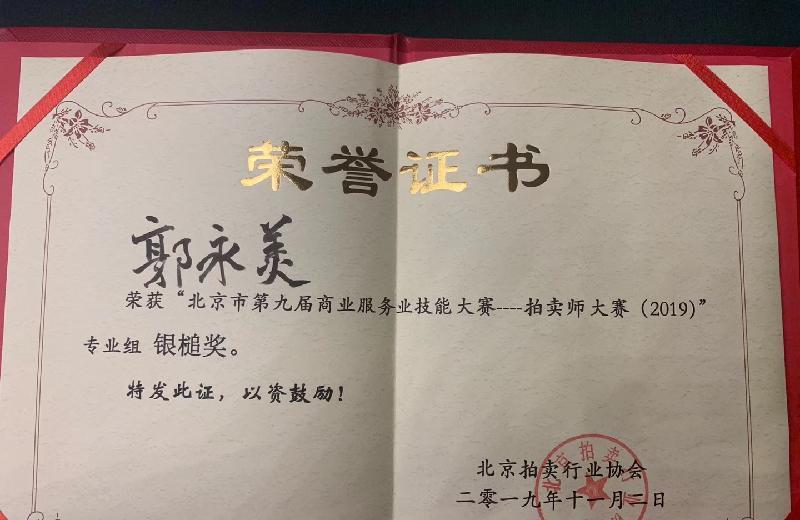 荣誉证书
郭永美
荣获“北京市第九届商业服务业技能大赛----拍卖师大赛（2019）”
专业组 银槌奖。
特发此证，以资鼓励！
北京拍卖行业协会
二零一九年十一月二日
北京拍卖行业